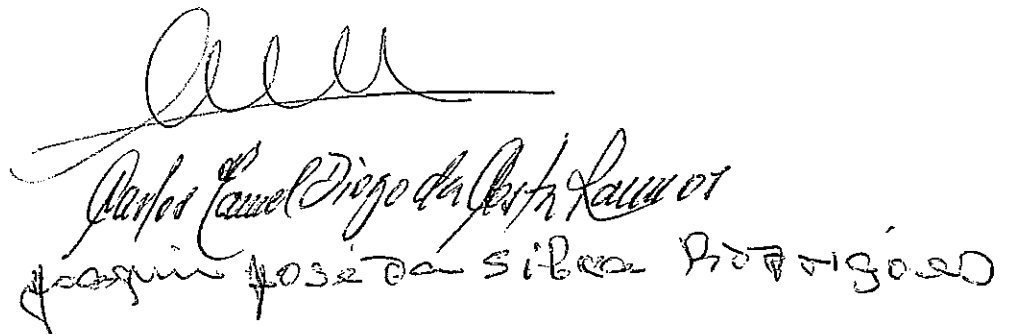 Carlos Camel Diogo da Costa Ramos
Joaquim José da Silva Rodrigues